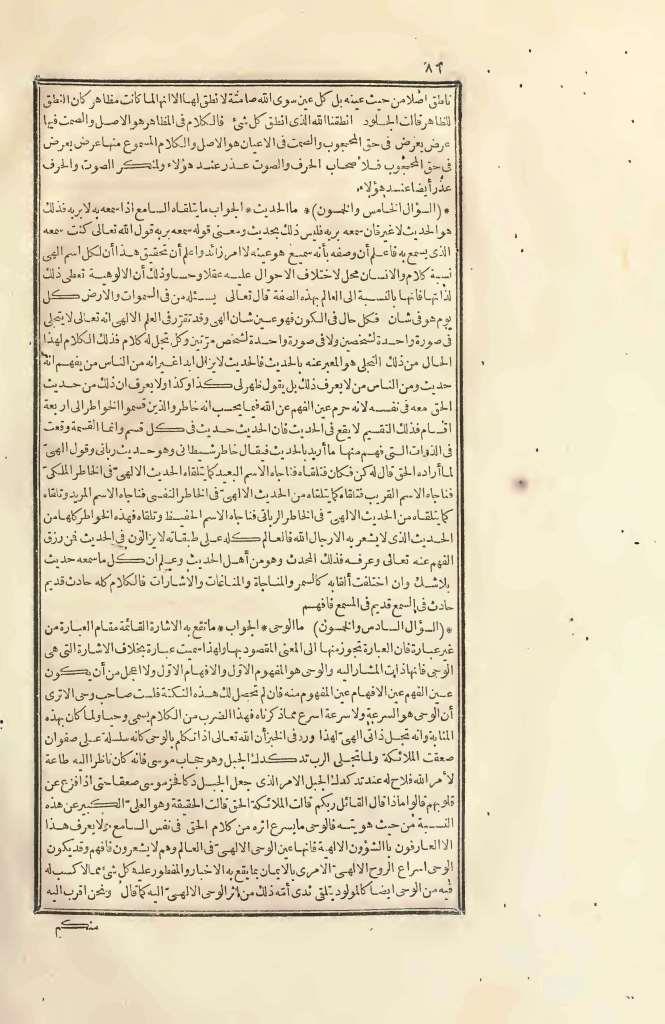 ٨٦
ناطق أصلا من حيث عينه بل كل عين سوى الله صامتة لا نطق لها الا انها لما كانت مظاهر كان النطق
للظاهر قالت الجلود أنطقنا الله الذى انطق كل شئ فالكلام فى المظاهر هو الاصل والصمت فيها
عرض يعرض فى حق المحجوب والصمت فى الاعيان هو الاصل والكلام المسموع منها عرض يعرض
فى حق المحجوب فلاصحاب الحرف والصوت عذر عند هؤلاء ولمنكر الصوت والحرف
عذر أيضا عند هؤلاء
* (السؤال الخامس والخمسون) * ما الحديث * الجواب ما يتلقاه السامع اذا سمعه به لا بربه فذلك
هو الحديث لا غير فان سمعه بربه فليس ذلك بحديث ومعنى قوله سمعه بربه قول الله تعالى كنت سمعه
الذى يسمع به فاعلم أن وصفه بأنه سميع هو عينه لا امر زائد واعلم أن تحقيق هذا أن لكل اسم الهى
نسبة كلام والانسان محل لاختلاف الاحوال عليه عقلا وحسا وذلك أن الالوهية تعطى ذلك
لذاتها فانها بالنسبة الى العالم بهذه الصفة قال تعالى يسئله من فى السموات والارض كل
يوم هو فى شان فكل حال فى الكون فهو عين شان الهى وقد تقرر فى العلم الالهى انه تعالى لا يتجلى
فى صورة واحدة لشخصين ولا فى صورة واحدة لشخص مرتين وكل تجل له كلام فذلك الكلام لهذا
الحال من ذلك التجلى هو المعبر عنه بالحديث فالحديث لا يزال ابدا غير انه من الناس من يفهم انه
حديث ومن الناس من لا يعرف ذلك بل يقول ظهر لى كذا وكذا ولا يعرف ان ذلك من حديث
الحق معه فى نفسه لانه حرم عين الفهم عن الله فيما يحسب انه خاطر والذين قسموا الخواطر الى اربعة
اقسام فذلك التقسيم لا يقع فى الحديث فان الحديث حديث فى كل قسم وانما القسمة وقعت
فى الذوات التى فهم منها ما أريد بالحديث فيقال خاطر شيطانى وهو حديث ربانى وقول الهى
لما أراده الحق قال له كن فكان فتلقاه فناجاه الاسم البعيد كما يتلقاه الحديث الالهى فى الخاطر الملكى
فناجاه الاسم القريب فتلقاه كما يتلقاه من الحديث الالهى فى الخاطر النفسى فناجاه الاسم المريد وتلقاه
كما يتلقاه من الحديث الالهى فى الخاطر الربانى فناجاه الاسم الحفيظ وتلقاه فهذه الخواطر كلها من
الحديث الذى لا يشعر به الا رجال الله فالعالم كله على طبقاته لا يزالون فى الحديث فمن رزق
الفهم عنه تعالى وعرفه فذلك المحدث وهو من أهل الحديث وعلم ان كل ما سمعه حديث
بلا شك وان اختلفت ألقابه كالسمر والمناجاة والمناغات والاشارات فالكلام كله حادث قديم
حادث فى السمع قديم فى المسمع فافهم
* (السؤال السادس والخمسون) ما الوحى * الجواب * ما تقع به الاشارة القائمة مقام العبارة من
غير عبارة فان العبارة تجوز منها الى المعنى المقصود بها ولهذا سميت عبارة بخلاف الاشارة التى هى
الوحى فانها ذات المشار اليه والوحى هو المفهوم الاول والافهام الاول ولا اعجل من أن يكون
عين الفهم عين الافهام عين المفهوم منه فان لم تحصل لك هذه النكتة فلست صاحب وحى الا ترى
أن الوحى هو السرعة ولا سرعة اسرع مما ذكرناه فهذا الضرب من الكلام يسمى وحيا ولما كان بهذه
المثابة وانه تجل ذاتى الهى لهذا ورد فى الخبر أن الله تعالى اذا تكلم بالوحى كانه سلسلة على صفوان
صعقت الملائكة ولما تجلى الرب تدكدك الجبل وهو حجاب موسى فانه كان ناظرا اليه طاعة
لامر الله فلاح له عند تدكدك الجبل الامر الذى جعل الجبل دكا فخر موسى صعقا حتى اذا فزع عن
قلوبهم قالوا ماذا قال القائل ربكم قالت الملائكة الحق قالت الحقيقة وهو العلى الكبير عن هذه
النسبة من حيث هويته فالوحى ما يسرع اثره من كلام الحق فى نفس السامع ولا يعرف هذا
الا العارفون بالشؤون الالهية فانها عين الوحى الالهى فى العالم وهم لا يشعرون فافهم وقد يكون
الوحى اسراع الروح الالهى الامرى بالايمان بما يقع به الاخبار والمفطور عليه كل شئ مما لا كسب له
فيه من الوحى ايضا كالمولود يتلقى ثدى أمه ذلك من اثر الوحى الالهى اليه كما قال ونحن اقرب اليه
منكم